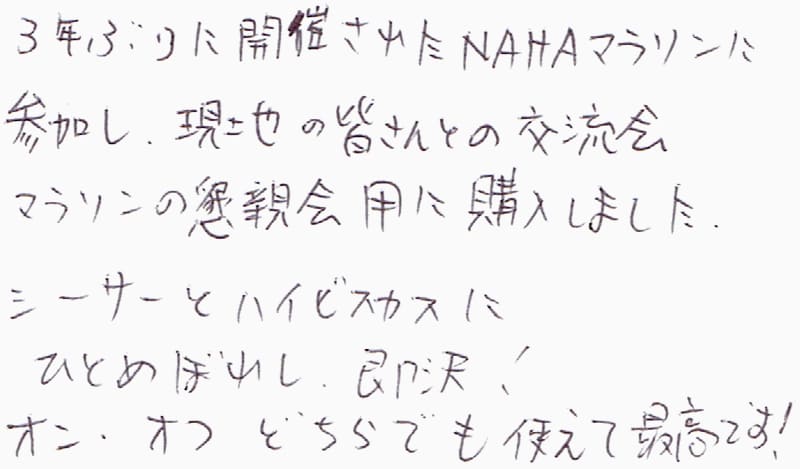 3年ぶりに開催されたNAHAマラソンに
参加し、現地の皆さんとの交流会
マラソンの懇親会用に購入しました。
シーサーとハイビスカスに
ひとめぼれし、即決!
オン・オフどちらでも使えて最高です!